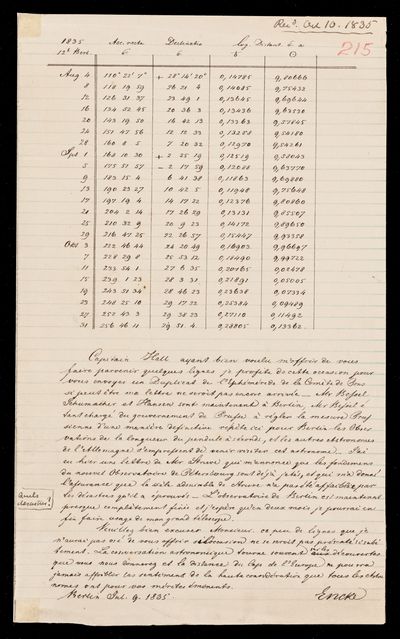 Recd. Oct 10. 1835
215
1835 Asc. recta Declinatio Log. Distant. a
12h Berl.
Aug 4 110° 22' 7" + 28° 14' 20" 0,14785 9,80666
8 118 19 59 26 21 4 0,14085 9,75432
12 126 31 37 23 49 1 0,13645 9,69644
16 134 52 45 20 36 3 0,13436 9,63530
20 143 19 50 16 42 13 0,13363 9,57845
24 151 47 56 12 12 33 0,13258 9,54180
28 160 8 5 7 20 32 0,12970 9,54261
Spt. 1 168 10 30 + 2 25 19 0,12519 9,58043
5 175 51 57 - 2 17 59 0,12088 9,63770
9 183 15 4 6 41 38 0,11863 9,69880
13 190 23 27 10 42 5 0,11948 9,75648
17 197 19 4 14 17 22 0,12376 9,80860
21 204 2 14 17 26 29 0,13131 9,85507
25 210 32 9 20 9 23 0,14172 9,89650
29 216 47 25 22 26 57 0,15447 9,93358
Oct 3 222 46 44 24 20 49 0,16903 9,96697
7 228 29 8 25 53 12 0,18490 9,99722
11 233 54 1 27 6 35 0,20165 0,02478
15 239 1 23 28 3 31 0,21891 0,05005
19 243 51 34 28 46 23 0,23638 0,07334
23 248 25 10 29 17 22 0,25384 0,09489
27 252 43 3 29 38 23 0,27110 0,11492
31 256 46 11 29 51. 4. 0,28805 0,13362.
Capitain Hall ayant bien voulu m'offrir de vous
faire parvenir quelques lignes je profite de cette occasion pour
vous envoyer un Duplicat de l'Ephéméride de la Comète de Pons
si peut être ma lettre ne seroit pas encore arrivée. — Mr Bessel
Schumacher et Hansen sont maintenant à Berlin, Mr Bessel é-
tant chargé du gouvernement de Prusse à régler la mesure Prus-
sienne d'une manière définitive répète ici pour Berlin les Obser-
vations de la longueur du pendule à seconde, et les autres astronomes
de l'Allemagne s'empressent de venir visiter cet astronome. J'ai
eu hier une lettre de Mr Struve qui m'annonce que les fondemens
du nouvel Observatoire de Petersbourg sont déjà jetés, et qui me donne
l'assurance que la santé admirable de Struve n'a pas été affectée par
les désastres qu'il a éprouvés. — L'observatoire de Berlin est maintenant
presque complètement finie et j'espère qu'en deux mois je pourrai en-
fin faire usage de mon grand télescope.
Quels désastres?
Veuillez bien excuser Monsieur, ce peu de lignes que je
n'aurai pas osé de vous offrir si l'occasion ne se seroit pas présentée si subi-
tement. La conversation astronomique tourne souvent sur les découvertes
que vous nous donnerez et la distance du Cap de l'Europe ne pourra
jamais affoiblir les sentimens de la haute considération que tous les astro-
nomes ont pour vos mérites éminents.
Berlin Jul. 9. 1835. Encke